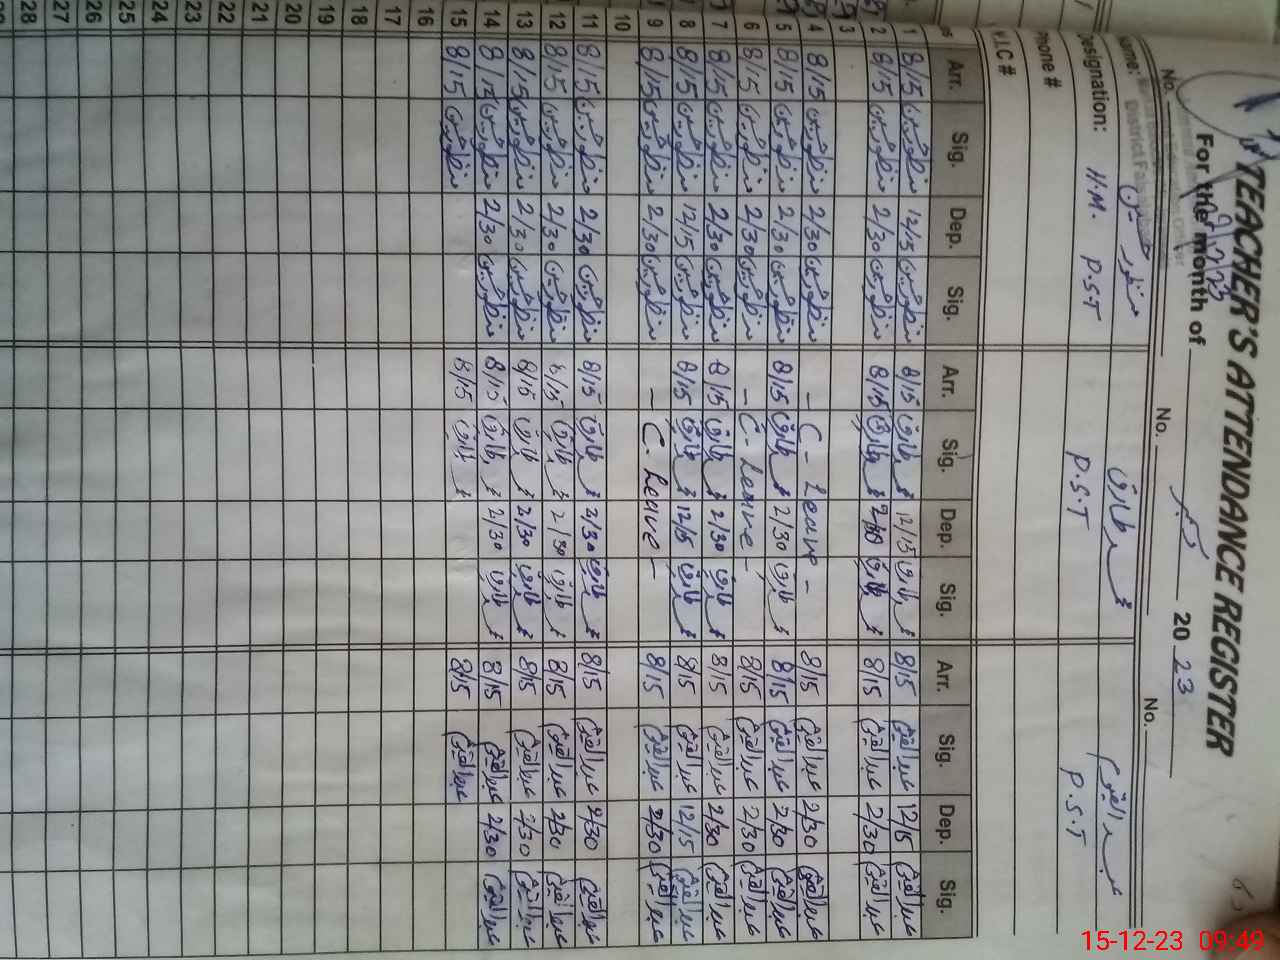 TEACHER'S ATTENDANCE REGISTER
For the month of دسمبر 2023
No. No. No.
Name: منظور حسین محمد طارق عبدالقیوم
Designation: H.M. P.S.T P.S.T P.S.T
Phone #
Arr. Sig. Dep. Sig. Arr. Sig. Dep. Sig. Arr. Sig. Dep. Sig.
1 8/15 منظور حسین 12/15 منظور حسین 8/15 محمد طارق 12/15 محمد طارق 8/15 عبدالقیوم 12/15 عبدالقیوم
2 8/15 منظور حسین 2/30 منظور حسین 8/15 محمد طارق 2/30 محمد طارق 8/15 عبدالقیوم 2/30 عبدالقیوم
3
4 8/15 منظور حسین 2/30 منظور حسین - C - Leave - 8/15 عبدالقیوم 2/30 عبدالقیوم
5 8/15 منظور حسین 2/30 منظور حسین 8/15 محمد طارق 2/30 محمد طارق 8/15 عبدالقیوم 2/30 عبدالقیوم
6 8/15 منظور حسین 2/30 منظور حسین - C - Leave - 8/15 عبدالقیوم 2/30 عبدالقیوم
7 8/15 منظور حسین 2/30 منظور حسین 8/15 محمد طارق 2/30 محمد طارق 8/15 عبدالقیوم 2/30 عبدالقیوم
8 8/15 منظور حسین 12/15 منظور حسین 8/15 محمد طارق 12/15 محمد طارق 8/15 عبدالقیوم 12/15 عبدالقیوم
9 8/15 منظور حسین 2/30 منظور حسین - C. Leave - 8/15 عبدالقیوم 2/30 عبدالقیوم
10
11 8/15 منظور حسین 2/30 منظور حسین 8/15 محمد طارق 2/30 محمد طارق 8/15 عبدالقیوم 2/30 عبدالقیوم
12 8/15 منظور حسین 2/30 منظور حسین 8/15 محمد طارق 2/30 محمد طارق 8/15 عبدالقیوم 2/30 عبدالقیوم
13 8/15 منظور حسین 2/30 منظور حسین 8/15 محمد طارق 2/30 محمد طارق 8/15 عبدالقیوم 2/30 عبدالقیوم
14 8/15 منظور حسین 2/30 منظور حسین 8/15 محمد طارق 2/30 محمد طارق 8/15 عبدالقیوم 2/30 عبدالقیوم
15 8/15 منظور حسین 8/15 محمد طارق 8/15 عبدالقیوم
16
17
18
19
20
21
22
23
24
25
26
27
28
15-12-23 09:49